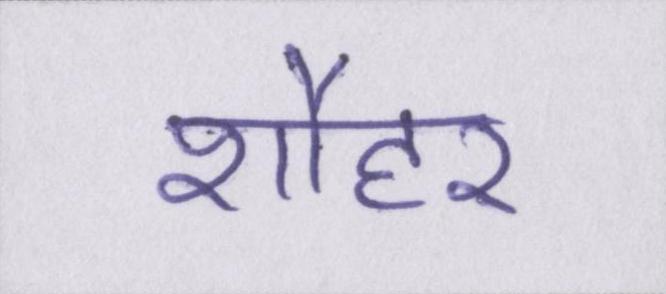 शौहर